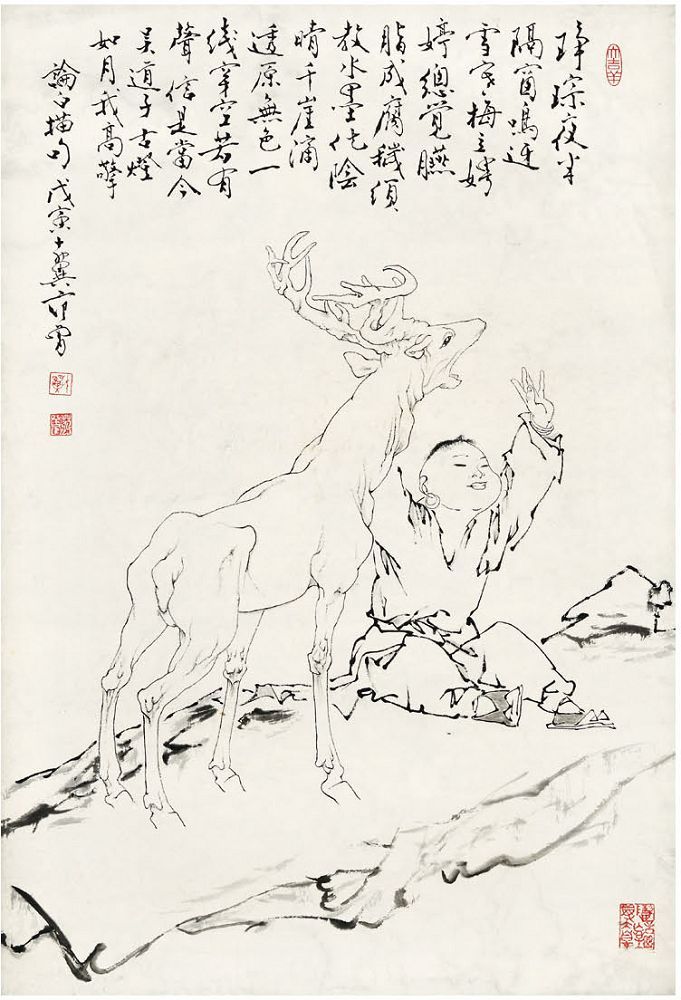 琤琮夜半
隔窗鳴迓
雪寒梅立娉
婷總覺臙
脂成腐穢須
教水墨化陰
晴千崖滴
透原無色一
綫穿空若有
聲信是當今
吳道子古燈
如月我高擎
論白描句 戊寅 十翼范曾
大吉羊